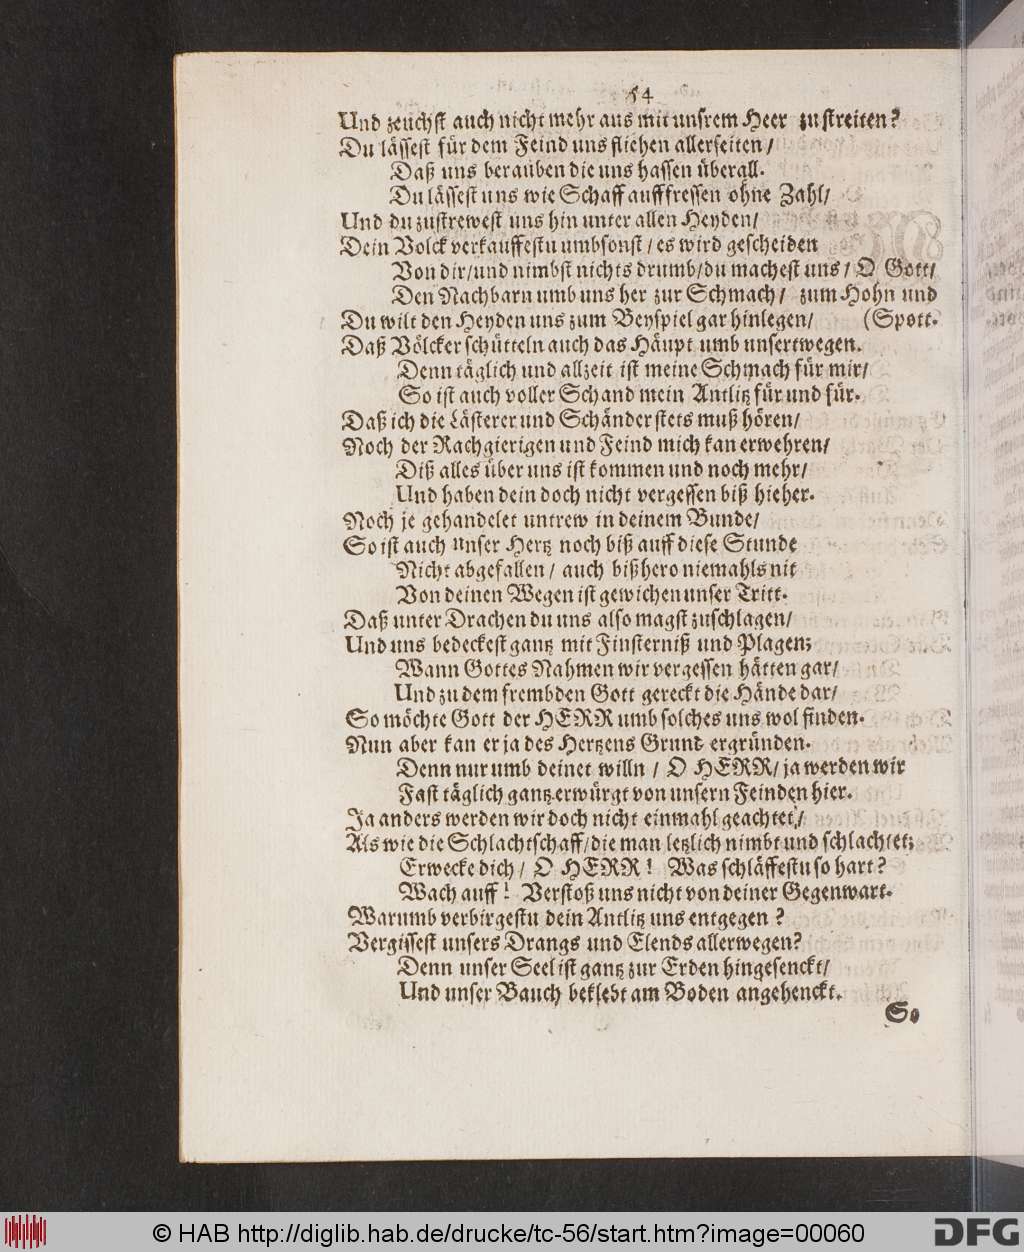 54
Und zeuchst auch nicht mehr aus mit unsrem Heer zu streiten?
Du lässest für dem Feind uns fliehen allerseiten/
Daß uns berauben die uns hassen überall.
Du lässest uns wie Schaff aufffressen ohne Zahl/
Und du zustrewest uns hin unter allen Heyden/
Dein Volck verkauffestu umbsonst/ es wird gescheiden
Von dir/ und nimbst nichts drumb/ du machest uns/ O Gott/
Den Nachbarn umb uns her zur Schmach/ zum Hohn und
Du wilt den Heyden uns zum Beyspiel gar hinlegen/ (Spott.
Daß Völcker schütteln auch das Häupt umb unsertwegen.
Denn täglich und allzeit ist meine Schmach für mir/
So ist auch voller Schand mein Antlitz für und für.
Daß ich die Lästerer und Schänder stets muß hören/
Noch der Rachgierigen und Feind mich kan erwehren/
Diß alles über uns ist kommen und noch mehr/
Und haben dein doch nicht vergessen biß hieher.
Noch je gehandelet untrew in deinem Bunde/
So ist auch unser Hertz noch biß auff diese Stunde
Nicht abgefallen/ auch bißhero niemahls nit
Von deinen Wegen ist gewichen unser Tritt.
Daß unter Drachen du uns also magst zuschlagen/
Und uns bedeckest gantz mit Finsterniß und Plagen;
Wann Gottes Nahmen wir vergessen hätten gar/
Und zu dem frembden Gott gereckt die Hände dar/
So möchte Gott der HERR umb solches uns wol finden.
Nun aber kan er ja des Hertzens Grund ergründen.
Denn nur umb deinet willn/ O HERR/ ja werden wir
Fast täglich gantz erwürgt von unsern Feinden hier.
Ja anders werden wir doch nicht einmahl geachtet/
Als wie die Schlachtschaff/ die man letzlich nimbt und schlachtet;
Erwecke dich/ O HERR! Was schläffestu so hart?
Wach auff! Verstoß uns nicht von deiner Gegenwart.
Warumb verbirgestu dein Antlitz uns entgegen?
Vergissest unsers Drangs und Elends allerwegen?
Denn unser Seel ist gantz zur Erden hingesenckt/
Und unser Bauch beklebt am Boden angehenckt.
So
© HAB http://diglib.hab.de/drucke/tc-56/start.htm?image=00060
DFG